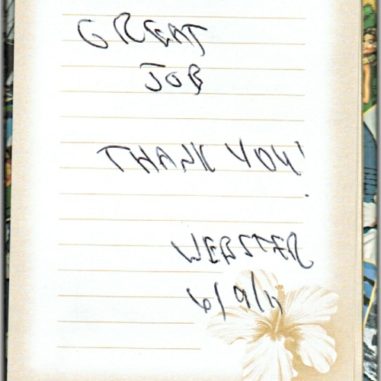 GREAT
JOB
THANK YOU!
WEBSTER
6/9/11